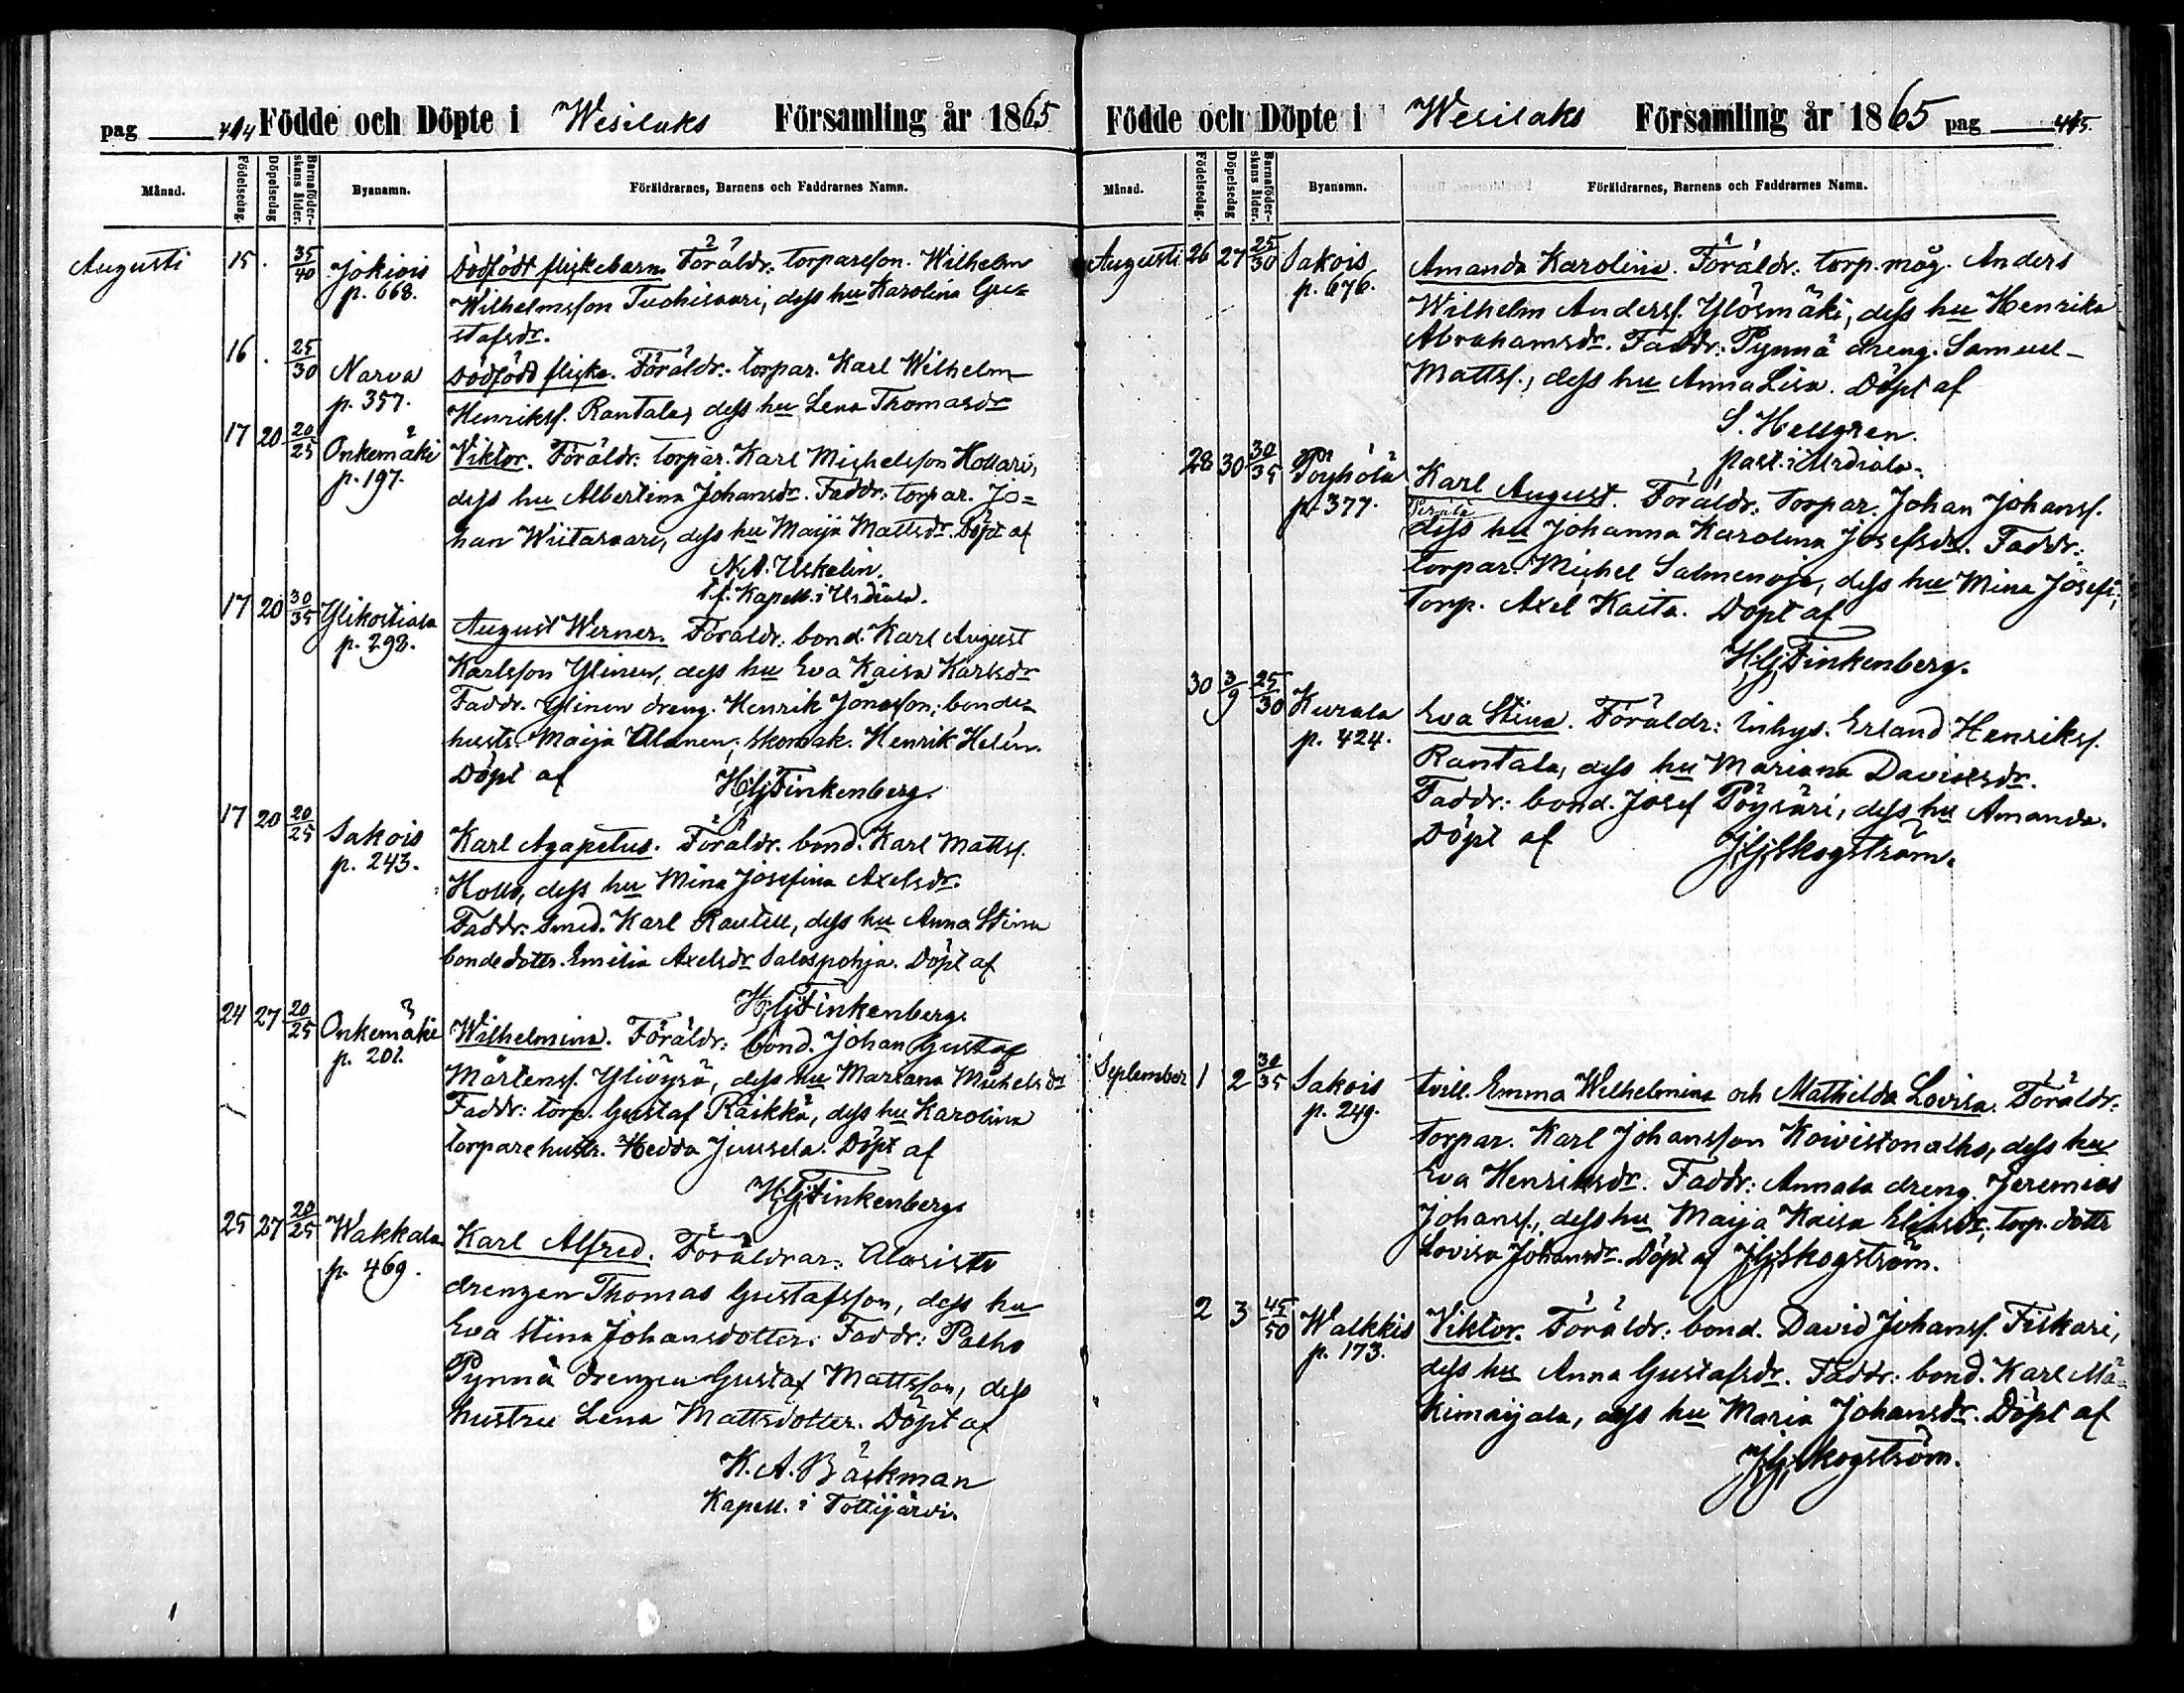 pag 414 Födde och Döpte i Wesilaks Församling år 1865
Månad. Födelsedag. Döpelsedag Barnaföderskans ålder. Byanamn. Föräldrarnes, Barnens och Faddrarnes Namn.
Augusti 15. 35/40 Jokiois p. 668. Dödfödt flickebarn. Föräldr. torpareson. Wilhelm
Wilhelmsson Tuohisaari, dess hu Karolina Gu=
stafsdr.
16. 25/30 Narva p. 357. Dödfödd flicka. Föräldr. torpar. Karl Wilhelm
Henrikss. Rantala, dess hu Lena Thomasdr
17 20 20/25 Onkemäki p. 197. Viktor. Föräldr. torpar. Karl Michelsson Hollari,
dess hu Albertina Johansdr. Faddr. torpar. Jo=
han Wiitasaari, dess hu Maija Mattsdr. Döpt af
N. A. Uskelin.
t.f. Kapell. i Urdiala.
17 20 30/35 Ylikostiala p. 292. August Werner. Föräldr. bond. Karl August
Karlsson Ylinen, dess hu Eva Kaisa Karlsdr
Faddr. Ylinen dreng. Henrik Jonasson, bonde=
hustr. Maija Alanen, skomak. Henrik Helén.
Döpt af H. Hj. Finkenberg.
17 20 20/25 Sakois p. 243. Karl Agapetus. Föräldr. bond. Karl Mattss.
Hollo, dess hu Mina Josefina Axelsdr.
Faddr. smed. Karl Rautell, dess hu Anna Stina
bondedottr. Emilia Axelsdr Salospohja. Döpt af
H. Hj. Finkenberg.
24 27 20/25 Onkemäki p. 201. Wilhelmina. Föräldr. bond. Johan Gustaf
Mårtenss. Yliöysä, dess hu Mariana Michelsdr
Faddr: torp. Gustaf Räikkä, dess hu Karolina
torparehustr. Hedda Juusela. Döpt af
H. Hj. Finkenberg.
25 27 20/25 Wakkala p. 469. Karl Alfred. Föräldrar: Alasisto
drengen Thomas Gustafsson, dess hu
Eva Stina Johansdotter. Faddr: Palho
Pynnä drengen Gustaf Mattsson, dess
hustru Lena Mattsdotter. Döpt af
K. A. Bäckman
Kapell. i Tottijärvi.
Födde och Döpte i Wesilaks Församling år 1865 pag 415.
Månad. Födelsedag. Döpelsedag Barnaföderskans ålder. Byanamn. Föräldrarnes, Barnens och Faddrarnes Namn.
Augusti 26 27 25/30 Sakois p. 676. Amanda Karolina. Föräldr. torp. måg. Anders
Wilhelm Anderss. Ylösmäki, dess hu Henrika
Abrahamsdr. Faddr: Pynnä dreng. Samuel
Mattss., dess hu Anna Lisa. Döpt af
S. Hellgren.
past. i Urdiala.
28 30 30/35 Pöyhölä p. 377. Karl August. Föräldr. torpar. Johan Johanss.
Perälä
dess hu Johanna Karolina Josefsdr. Faddr:
torpar. Michel Salmenoja, dess hu Mina Josefi,
torp. Axel Kaita. Döpt af
H. Hj. Finkenberg.
30 3/9 25/30 Kurala p. 424. Eva Stina. Föräldr: Inhys. Erland Henrikss.
Rantala, dess hu Mariana Davidsdr.
Faddr: bond. Josef Pöysäri, dess hu Amanda.
Döpt af J. Hj. Skogström.
September 1 2 30/35 Sakois p. 249. tvill. Emma Wilhelmina och Mathilda Lovisa. Föräldr.
torpar. Karl Johansson Koivistonalho, dess hu
Eva Henriksdr. Faddr: Annala dreng. Jeremias
Johanss., dess hu Maija Kaisa Eliasdr, torp. dottr
Lovisa Johansdr. Döpt af J. Hj. Skogström.
2 3 45/50 Walkkis p. 173. Viktor. Föräldr: bond. David Johanss. Fiskari,
dess hu Anna Gustafsdr. Faddr: bond. Karl Mä=
kimaijala, dess hu Maria Johansdr. Döpt af
J. Hj. Skogström.